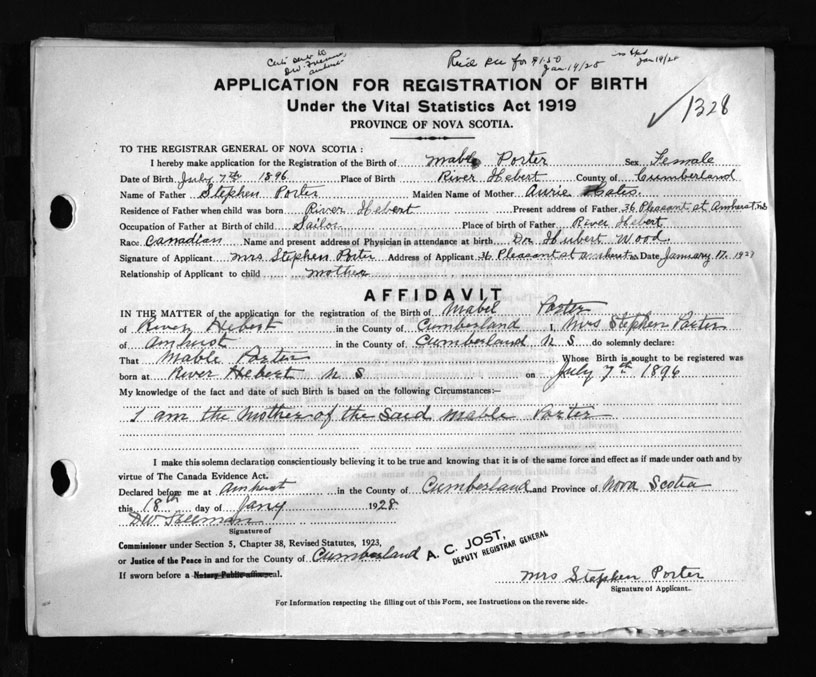 Rec'd fee for $1.50
Jan. 19/28
Jan 19/28
APPLICATION FOR REGISTRATION OF BIRTH
Under the Vital Statistics Act 1919
PROVINCE OF NOVA SCOTIA.
1328
TO THE REGISTRAR GENERAL OF NOVA SCOTIA:
I hereby make application for the Registration of the Birth of Mable Porter Sex Female
Date of Birth July 7th 1896 Place of Birth River Hebert County of Cumberland
Name of Father Stephen Porter Maiden Name of Mother Aurie
Residence of Father when child was born River Hebert Present address of Father 36 Pleasant st Amherst NS
Occupation of Father at Birth of child Sailor Place of birth of Father River Hebert
Race Canadian Name and present address of Physician in attendance at birth Dr Hubert Wood
Signature of Applicant Mrs Stephen Porter Address of Applicant 36 Pleasant st Amherst NS Date January 17. 1928
Relationship of Applicant to child mother
AFFIDAVIT
IN THE MATTER of the application for the registration of the Birth of Mabel Porter
of River Hebert in the County of Cumberland I, Mrs Stephen Porter
of Amherst in the County of Cumberland N S do solemnly declare:
That Mable Porter Whose Birth is sought to be registered was
born at River Hebert N S on July 7th 1896
My knowledge of the fact and date of such Birth is based on the following Circumstances:—
I am the Mother of the Said Mable Porter
I make this solemn declaration conscientiously believing it to be true and knowing that it is of the same force and effect as if made under oath and by
virtue of The Canada Evidence Act.
Declared before me at Amherst in the County of Cumberland and Province of Nova Scotia
this 18th day of Jany 1928
Signature of
Commissioner under Section 5, Chapter 38, Revised Statutes, 1923,
or Justice of the Peace in and for the County of Cumberland
A. C. JOST,
DEPUTY REGISTRAR GENERAL
If sworn before a Notary Public affix seal.
Mrs Stephen Porter
Signature of Applicant.
For Information respecting the filling out of this Form, see Instructions on the reverse side.